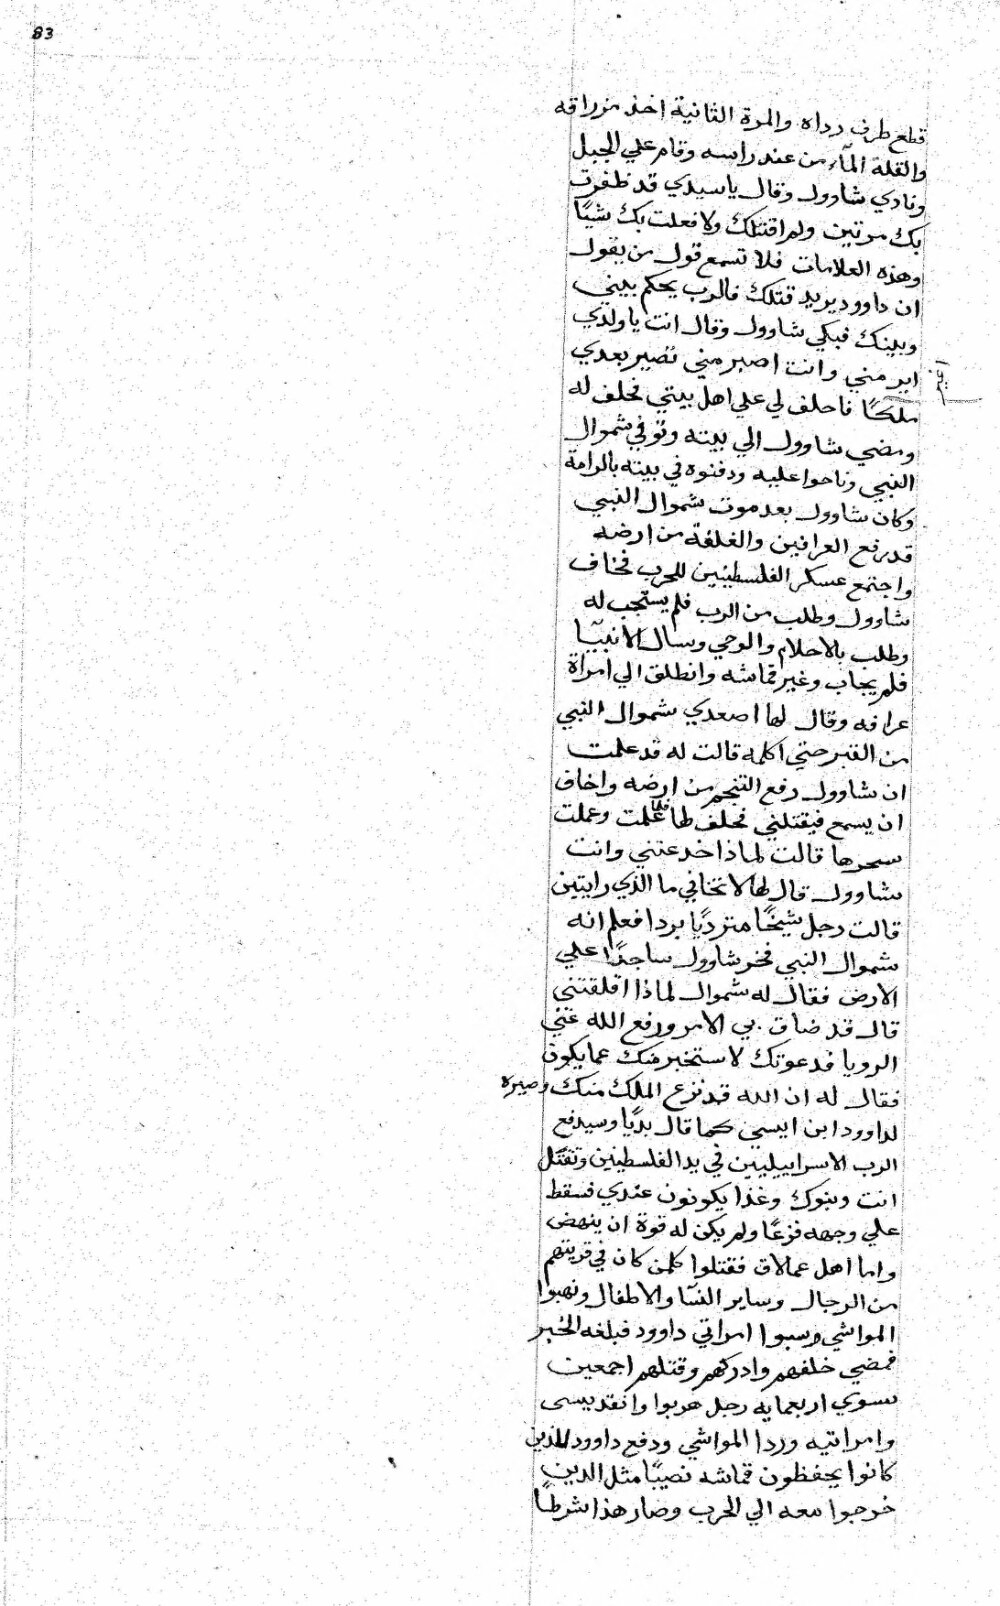 83
قطع طرف رداه والمرة الثانية اخذ مزراقه
والقلة المآء من عند راسه وقام علي الجبل
ونادي شاوول وقال ياسيدي قد ظفرت
بك مرتين ولم اقتلك ولا فعلت بك شيًا
وهذه العلامات فلا تسمع قول من يقول
ان داوود يريد قتلك فالرب يحكم بيني
وبينك فبكي شاوول وقال انت ياولدي
ابر مني وانت اصبر مني تصير بعدي
ملكًا فاحلف لي علي اهل بيتي فحلف له
ومضي شاوول الي بيته وتوفي شموال
النبي وناحوا عليه ودفنوه في بيته بالرامة
وكان شاوول بعد موت شموال النبي
قد رفع العرافين والغلفة من ارضه
واجتمع عسكر الفلسطينين للحرب فخاف
شاوول وطلب من الرب فلم يستجب له
وطلب بالاحلام والوحي وسال الانبيآ
فلم يجاب وغير قماشه وانطلق الي امراة
عرافه وقال لها اصعدي شموال النبي
من القبر حتي اكلمه قالت له قد علمت
ان شاوول رفع التنجم من ارضه واخاف
ان يسمع فيقتلني فحلف لها فلما علمت وعملت
سحرها قالت لماذا خدعتني وانت
شاوول قال لها لا تخافي ما الذي رايتين
قالت رجل شيخًا متردًيا بردا فعلم انه
شموال النبي فخر شاوول ساجدًا علي
الارض فقال له شموال لماذا اقلقتني
قال قد ضاق بي الامر ورفع الله عني
الرويا فدعوتك لاستخبر منك عما يكون
فقال له ان الله قد نزع الملك منك وصيره
لداوود ابن ايسي كما قال بديًا وسيدفع
الرب الاسراييليين في يد الفلسطينين وتقتل
انت وبنوك وغدا يكونون عندي فسقط
علي وجهه فزعًا ولم يكن له قوة ان ينهض
واما اهل عمالاق فقتلوا كلمن كان في قريتهم
من الرجال وساير النسآ والاطفال ونهبوا
المواشي وسبوا امراتي داوود فبلغه الخبر
فمضي خلفهم وادركهم وقتلهم اجمعين
سوي اربعمايه رجل هربوا وانقد يسى
وامراتيه وردا المواشي ودفع داوود للذين
كانوا يحفظون قماشه نصيبًا مثل الدين
خرجوا معه الي الحرب وصار هذا شرطًا